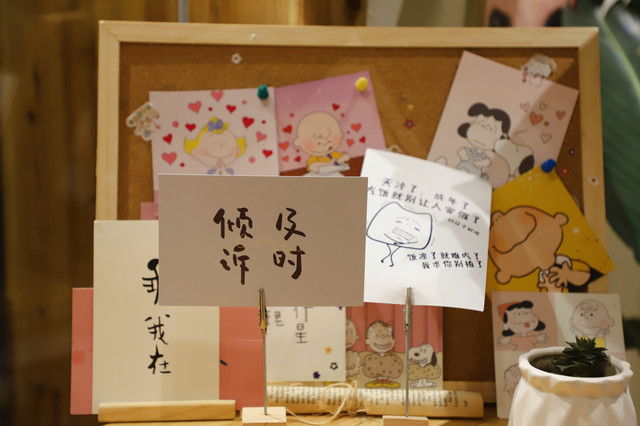 及时
倾诉
天冷了，成年了
吃饭就别让人家催了
饭凉了就难吃了
我求你别拍了
我在
星